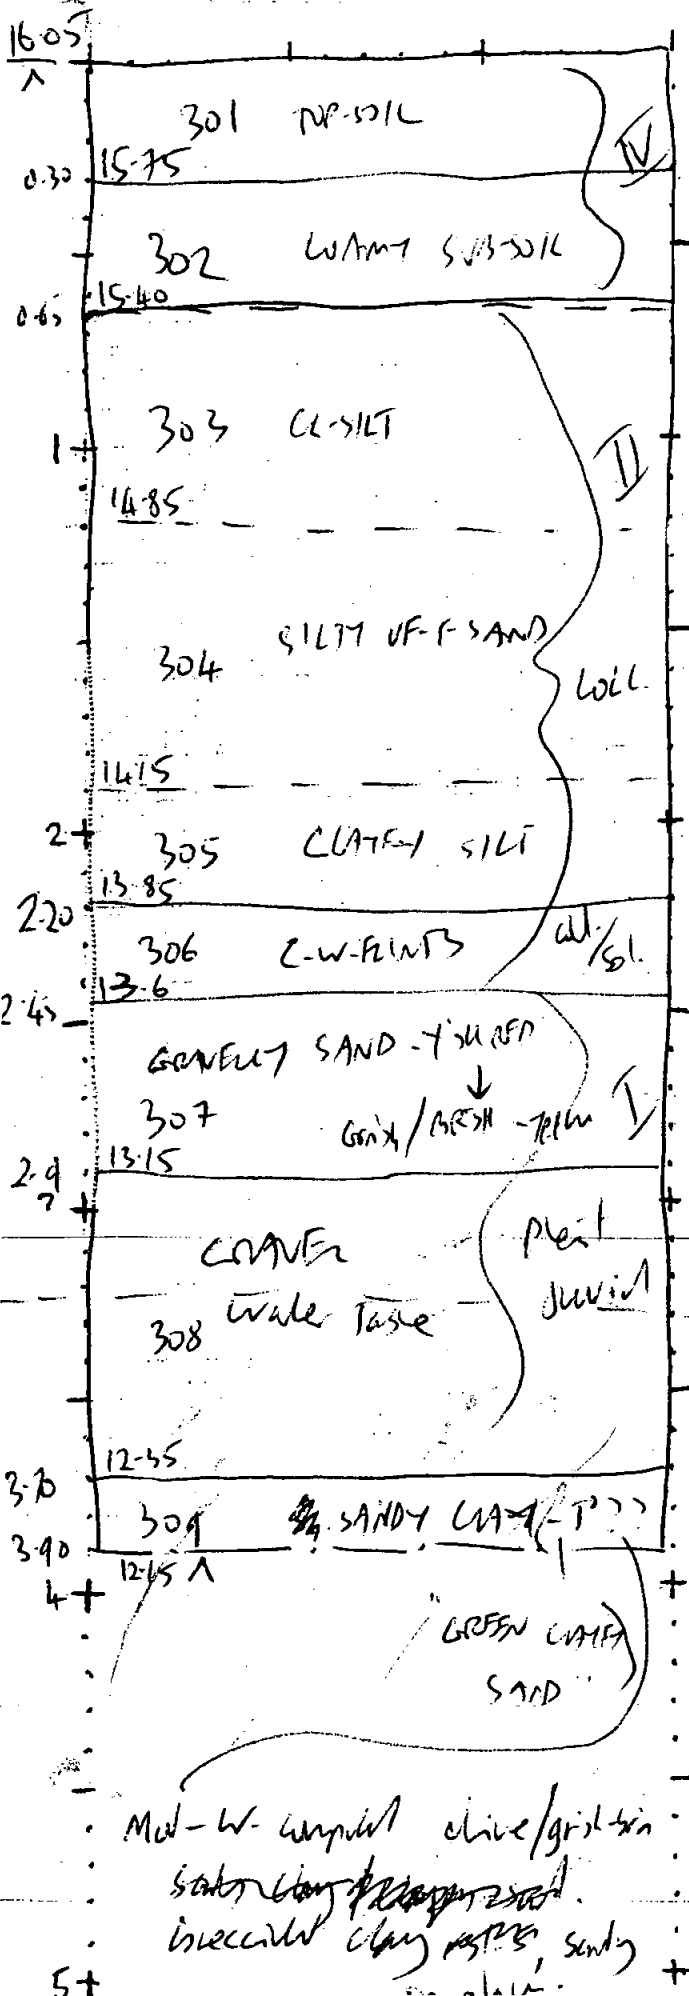 16.05
301 TOP-SOIL
IV
0.30 15.75
302 LOAMY SUB-SOIL
0.65 15.40
303 CL-SILT
II
1
14.85
SILTY VF-F-SAND
304
Coll.
14.15
2
305 CLAYEY SILT
13.85
2.20
306 C-W-FLINTS coll./sol.
13.6
2.45
GRAVELLY SAND - Y'SH RED
↓
307 I
13.15
2.9
?
GRAVEL Pleist
Fluvial
Water Table
308
12.35
3.70
309 SANDY CLAY - T???
3.90
12.15
4
"GREEN CLAYEY
SAND"
Mod-W-compact olive/grish-brn
clay
brecciated clay, sandy
5